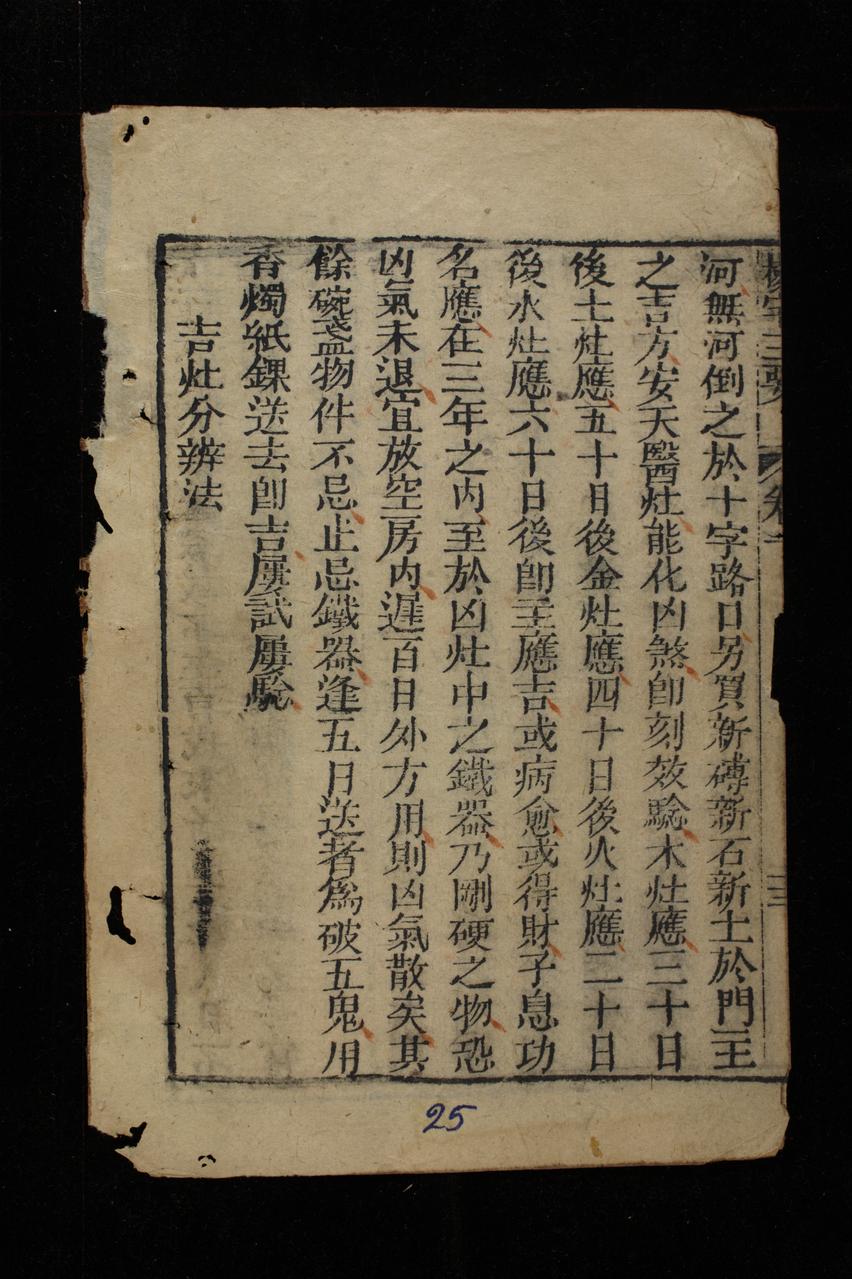 陽宅三要 卷一 三
河無河倒之於十字路口另買新磚新石新土於門主
之吉方安天醫灶能化凶煞卽刻效驗木灶應三十日
後土灶應五十日後金灶應四十日後火灶應二十日
後水灶應六十日後卽主應吉或病愈或得財子息功
名應在三年之内至於凶灶中之鐵器乃剛硬之物恐
凶氣未退宜放空房内遲百日外方用則凶氣散矣其
餘碗盞物件不忌止忌鐵器逢五日送者爲破五鬼用
香燭紙錁送去卽吉屢試屢驗
吉灶分辨法
25